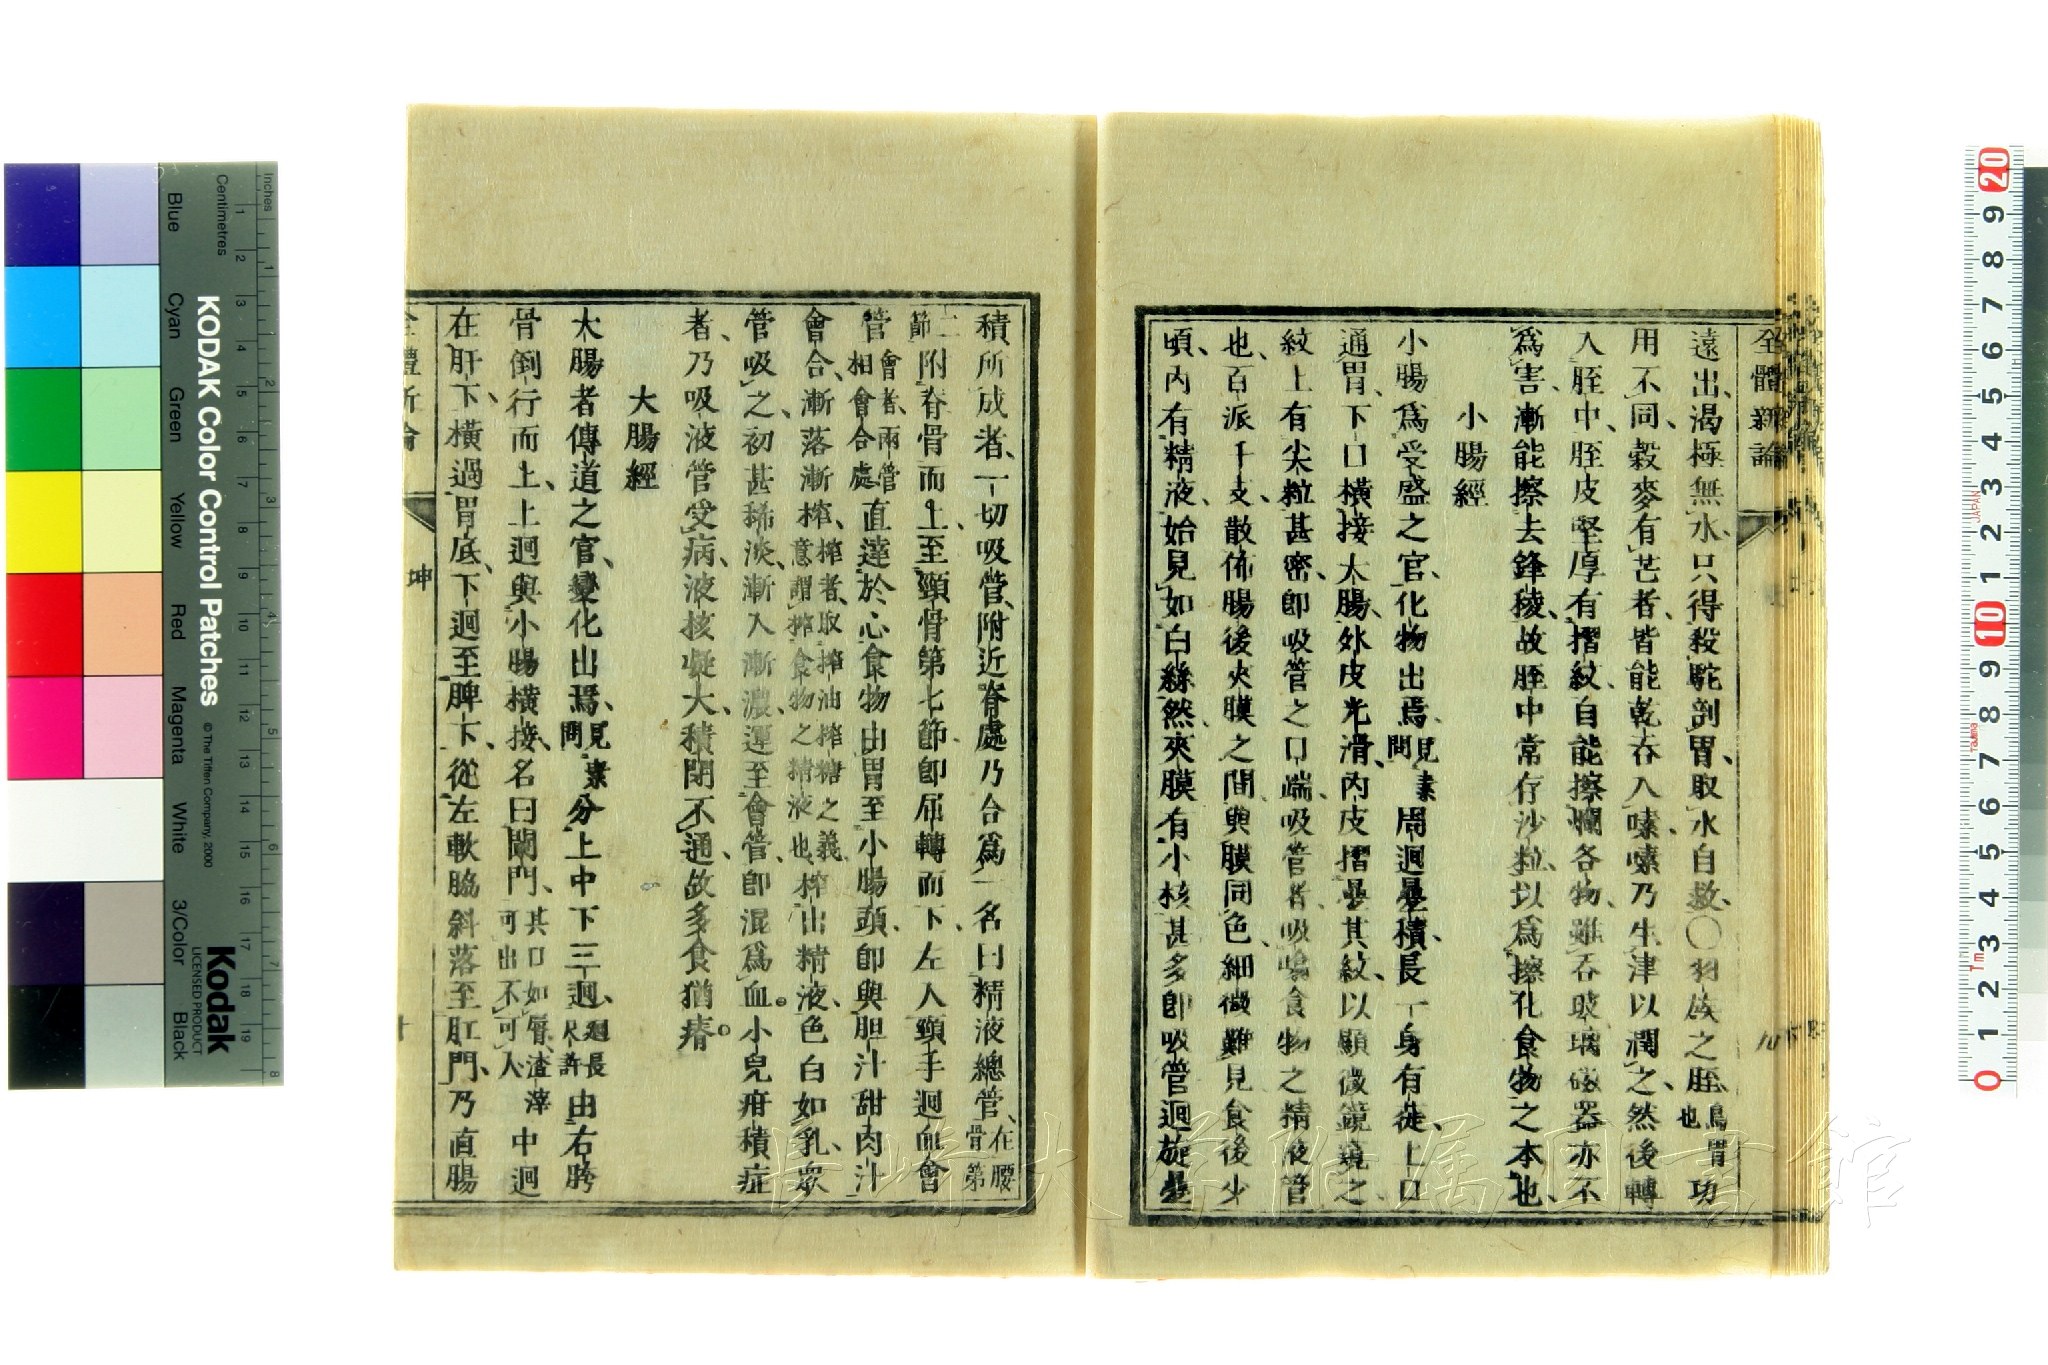 全體新論
遠出、渴極無水、只得殺駝剖胃、取水自救、〇羽族之胵、鳥胃也功
用不同、穀麥有芒者、皆能乾呑入嗉、嗉乃生津以潤之、然後轉
入胵中、胵皮堅厚有摺紋、自能擦爛各物、雖呑玻璃磁器亦不
爲害、漸能擦去鋒稜、故胵中常存沙粒、以爲擦化食物之本也、
小腸經
小腸爲受盛之官、化物出焉、見素問周迴疊積、長一身有徒、上口
通胃、下口橫接大腸、外皮光滑、內皮摺疊其紋、以顯微鏡窺之
紋上有尖粒甚密、即吸管之口端、吸管者、吸噏食物之精液管
也、百派千支、散佈腸後夾膜之間、與膜同色、細微難見、食後少
頃、內有精液、始見如白絲然、夾膜有小核甚多、即吸管迴旋疊
積所成者、一切吸管、附近脊處、乃合爲一、名曰精液總管、在腰骨第
二節附脊骨而上、至頸骨第七節、即屈轉而下、左入頸手迴血會
管、會者、兩管相會合處直達於心、食物由胃至小腸頭、即與胆汁甜肉汁
會合、漸落漸榨、榨者、取榨油榨糖之義、意謂榨食物之精液也榨出精液、色白如乳、衆
管吸之、初甚稀淡、漸入漸濃、運至會管、即混爲血。小兒疳積症
者、乃吸液管受病、液核凝大、積閉不通、故多食猶瘠。
大腸經
大腸者傳道之官、變化出焉、見素問分上中下三迴、迴長尺許由右胯
骨倒行而上、上迴與小腸橫接、名曰闌門、其口如唇、渣滓可出不可入中迴
在肝下、橫過胃底、下迴至脾下、從左軟脇斜落至肛門、乃直腸
全體新論
坤